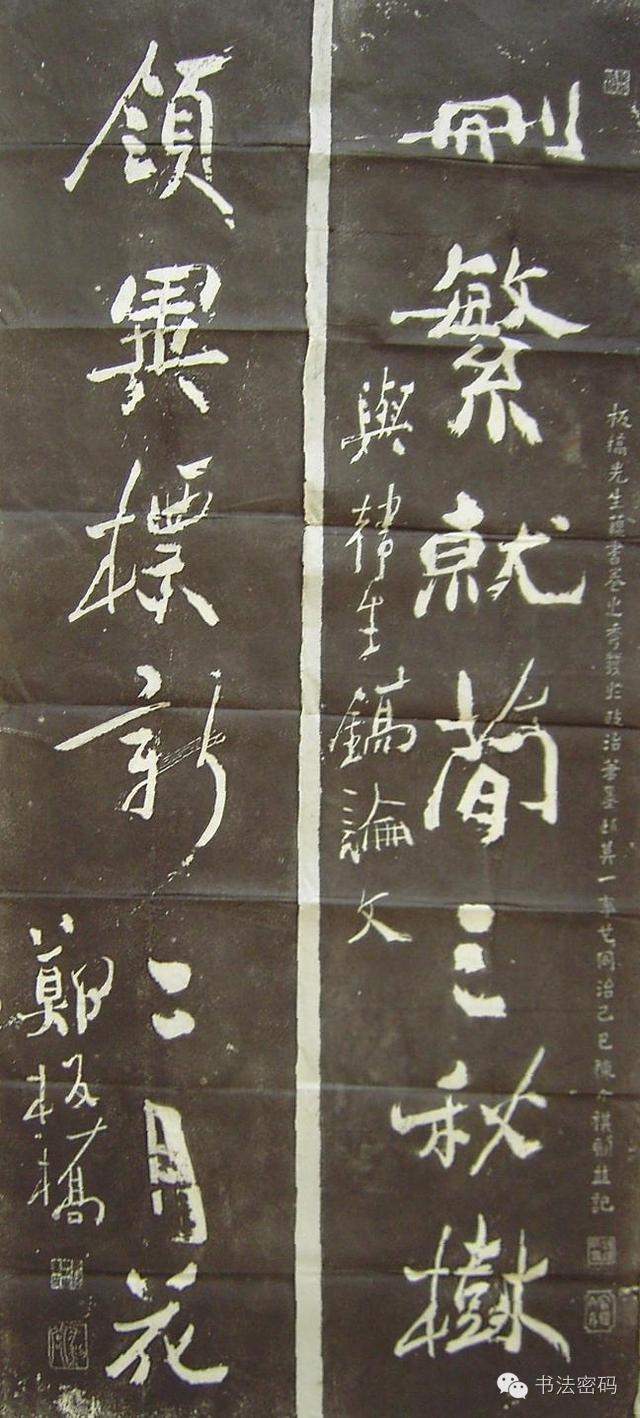 板橋先生書卷之秀發於政治筆墨其一事也同治己巳陳介祺並記
刪繁就簡三秋樹
與韓生鎬論文
領異標新二月花
鄭板橋
书法密码